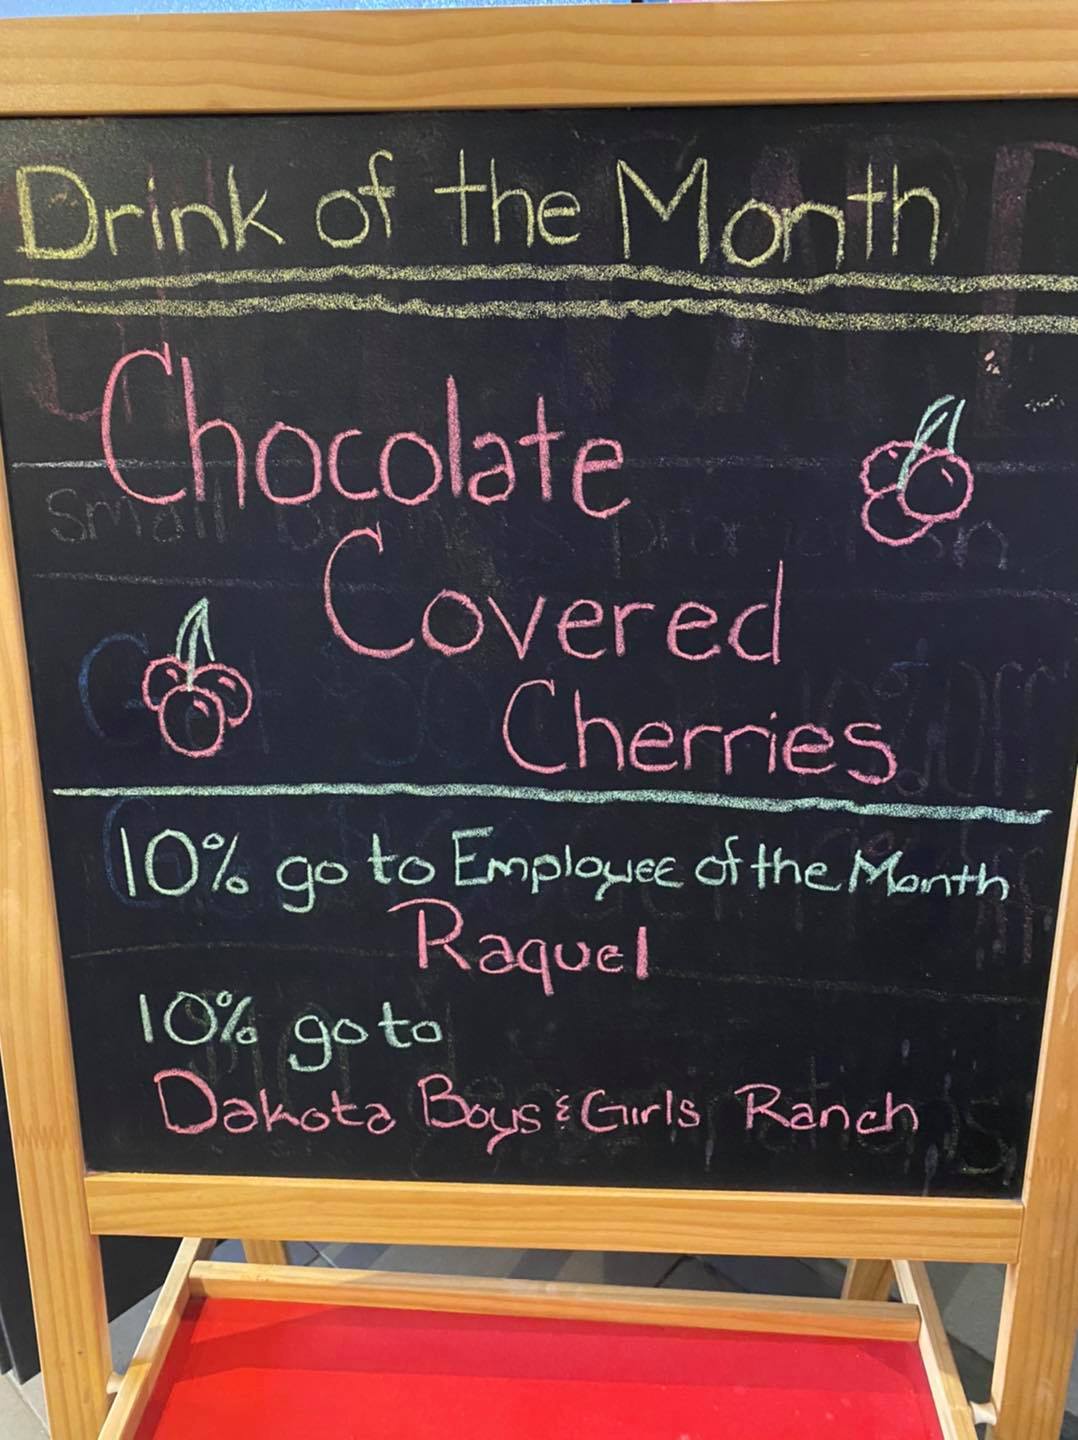 Drink of the Month
Chocolate
Covered
Cherries
10% go to Employee of the Month
Raquel
10% go to
Dakota Boys & Girls Ranch
Small